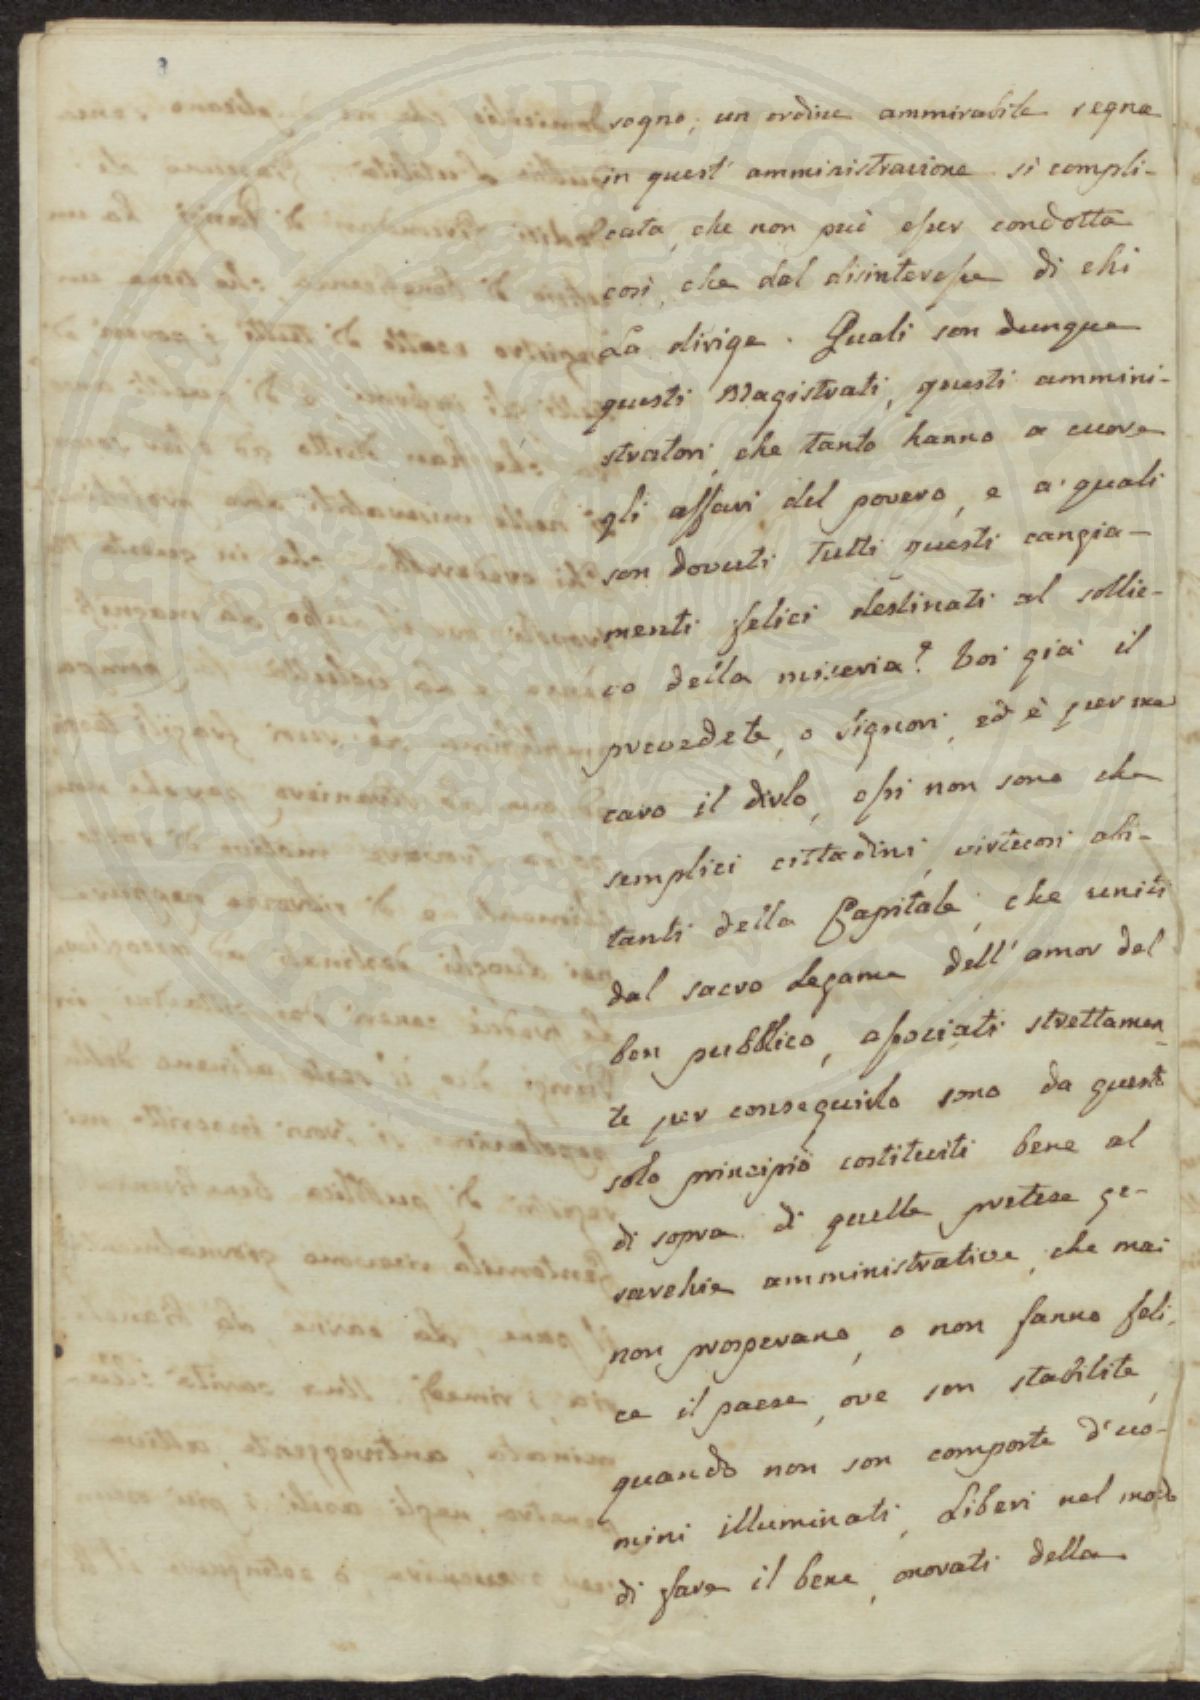 sogno; un ordine ammirabile regna
in quest' amministrazione sì compli-
cata, che non può esser condotta
così, che dal disinteresse di chi
La dirige. Quali son dunque
questi Magistrati, questi ammini-
stratori, che tanto hanno a cuore
gli affari del povero, e a' quali
son dovuti tutti questi cangia-
menti felici destinati al sollie-
vo della miseria? Voi già il
prevedete, o Signori, ed è per me
caro il dirlo, essi non sono che
semplici cittadini, virtuosi abi-
tanti della Capitale, che uniti
dal sacro Legame dell' amor del
ben pubblico, associati strettamen
te per conseguirlo sono da questo
solo principio costituiti bene al
di sopra di quelle pretese ge-
rarchie amministrative, che mai
non prosperano, o non fanno feli-
ce il paese, ove son stabilite,
quando non son composte d'uo-
mini illuminati, Liberi nel modo
di fare il bene, onorati della